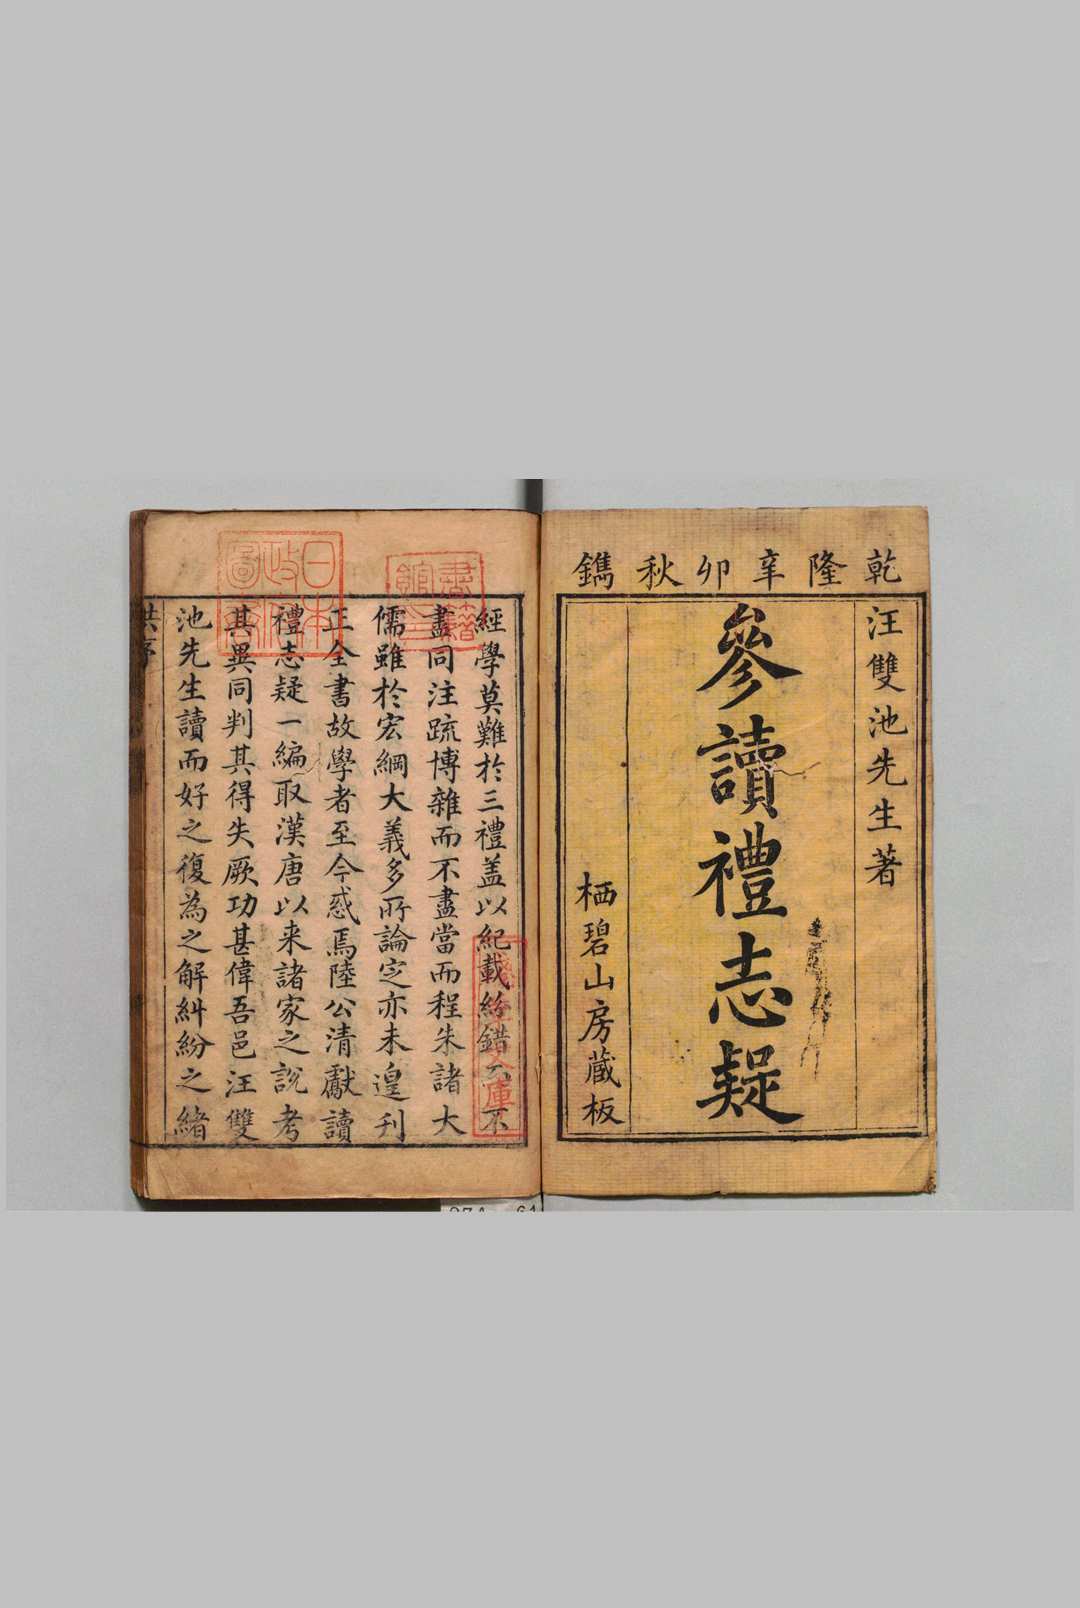 乾隆辛卯秋鐫
汪雙池先生著
參讀禮志疑
栖碧山房藏板
經學莫難於三禮盖以紀載紛錯不
盡同注疏博雜而不盡當而程朱諸大
儒雖於宏綱大義多所論定亦未遑刊
正全書故學者至今惑焉陸公清獻讀
禮志疑一編取漢唐以来諸家之說考
其異同判其得失厥功甚偉吾邑汪雙
池先生讀而好之復為之解糾紛之緒
洪序
書籍館印
日本政府圖書
文庫